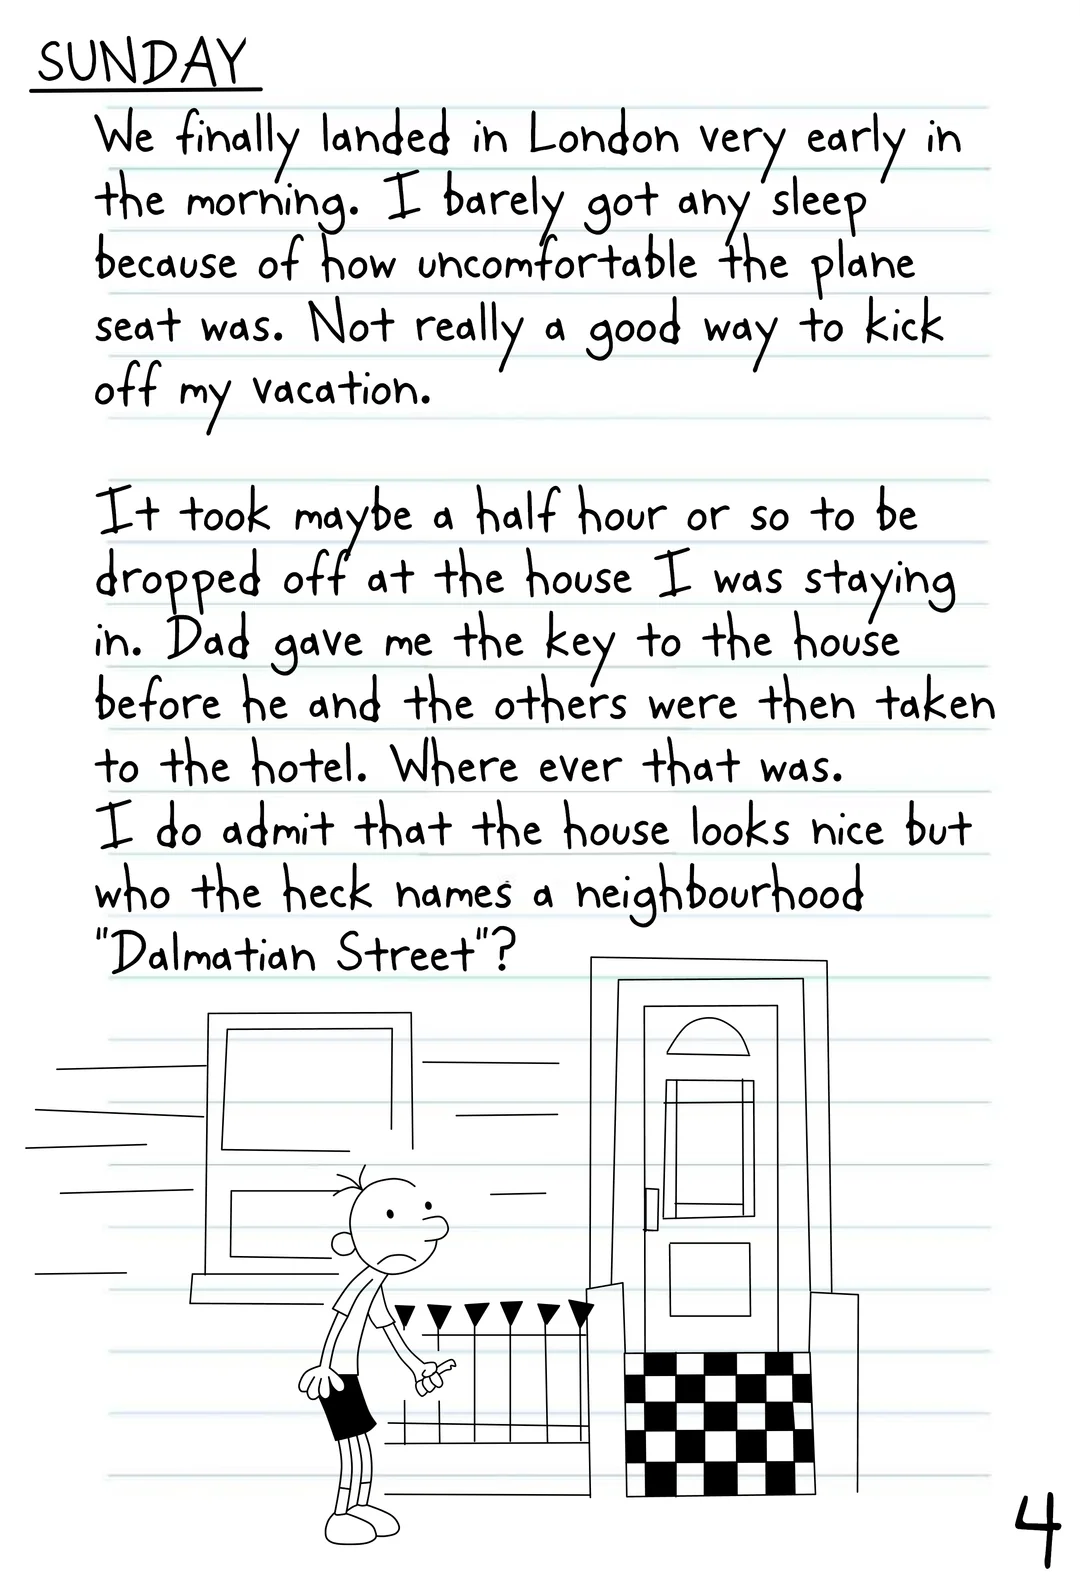 SUNDAY
We finally landed in London very early in
the morning. I barely got any sleep
because of how uncomfortable the plane
seat was. Not really a good way to kick
off my vacation.
It took maybe a half hour or so to be
dropped off at the house I was staying
in. Dad gave me the key to the house
before he and the others were then taken
to the hotel. Where ever that was.
I do admit that the house looks nice but
who the heck names a neighbourhood
"Dalmatian Street"?
4